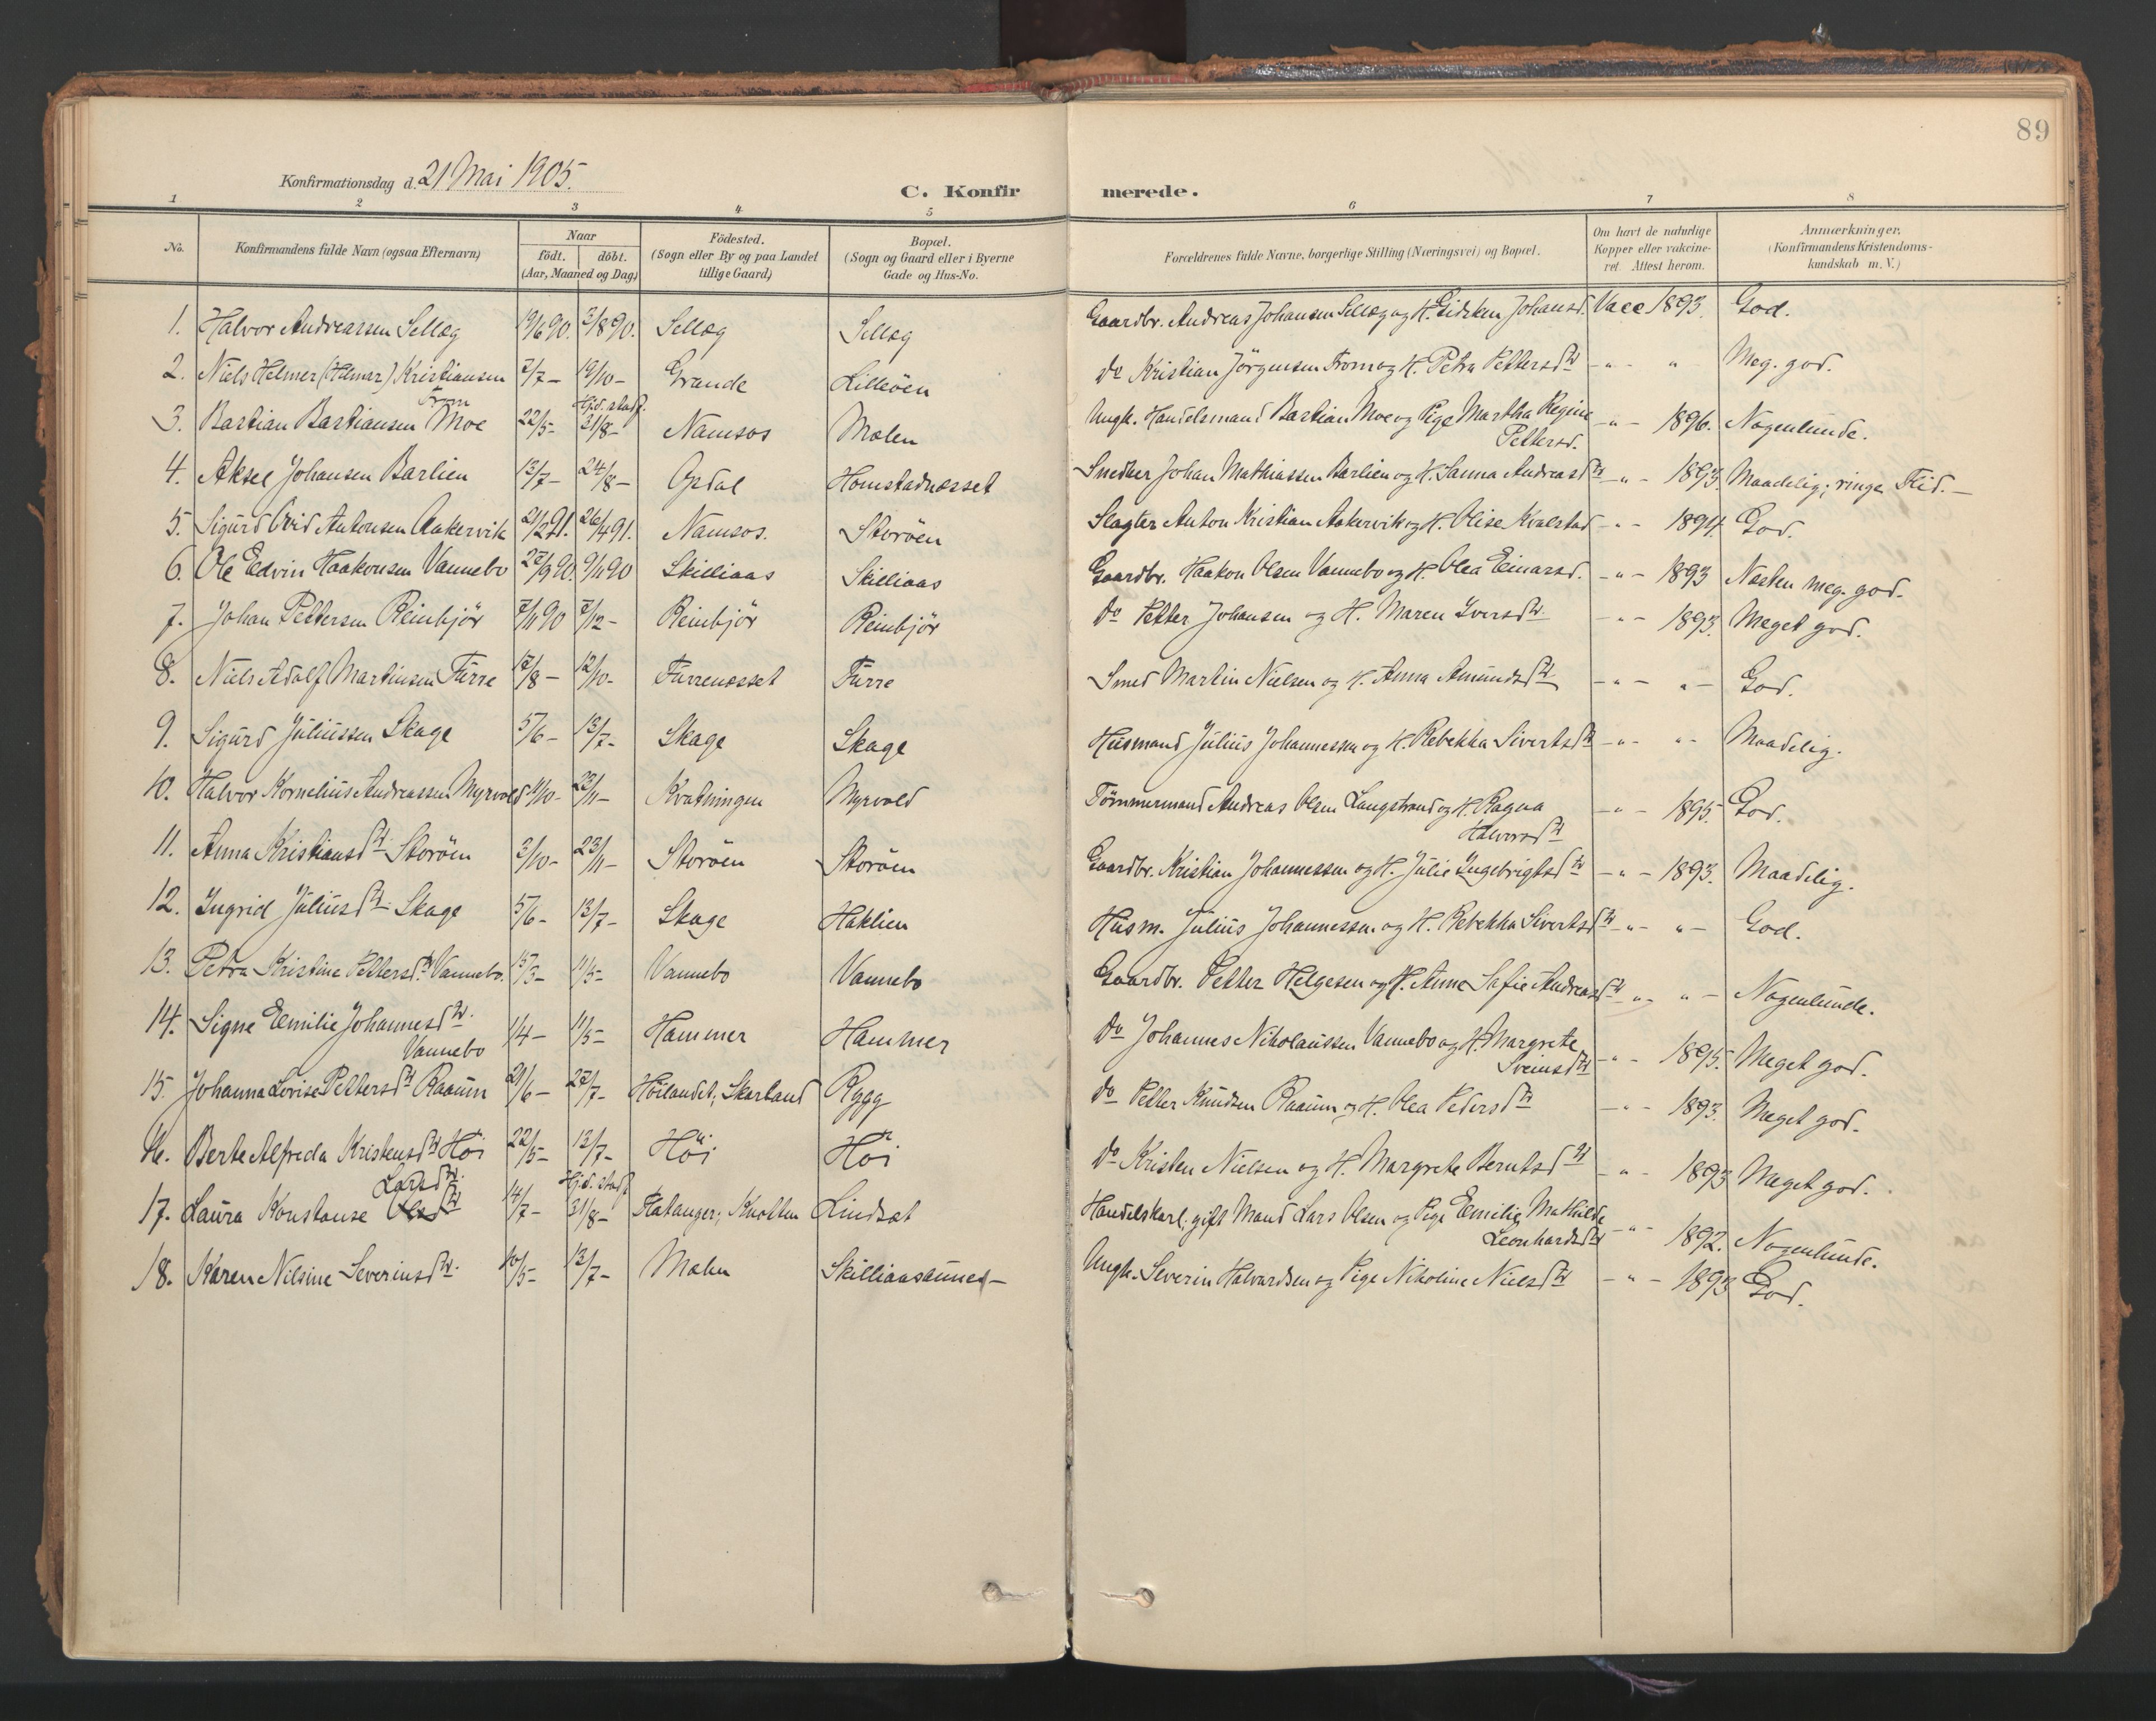 89
Konfirmationsdag d. 21 Mai 1905.
C. Konfirmerede.
1 2 3 4 5 6 7 8
No. | Konfirmandens fulde Navn (ogsaa Efternavn) | Naar født. døbt. (Aar, Maaned og Dag) | Fødested. (Sogn eller By og paa Landet tillige Gaard) | Bopæl. (Sogn og Gaard eller i Byerne Gade og Hus-No. | Forældrenes fulde Navne, borgerlige Stilling (Næringsvei) og Bopæl. | Om havt de naturlige Kopper eller vakcineret. Attest herom. | Anmærkninger. (Konfirmandens Kristendomskundskab m. V.)
1. Halvor Andreassen Sellæg | 19/6 90. | 3/8 90. | Sellæg | Sellæg | Gaardbr. Andreas Johansen Sellæg og H. Gidsken Johansd. | Vacc. 1893. | God.
2. Niels Helmer (Hilmar) Kristiansen From | 2/7 – | 19/10 – | Grande | Lilleöen | Do Kristian Jörgensen From og H. Petra Pettersdtr | – " – " | Meg. god.
3. Bastian Bastiansen Moe | 22/5 – | Hjd. stadf. 31/8 – | Namsos | Moløn | Ungk. Handelsmand Bastian Moe og Pige Martha Regine Pettersd. | – " – 1896. | Nogenlunde.
4. Aksel Johansen Barlien | 13/7 – | 24/8 – | Opdal | Homstadnæsset | Smedker Johan Mathiassen Barlien og H. Sanna Andreasdtr | – " – 1893. | Maadelig; ringe Flid. –
5. Sigurd Ovid Antonsen Aakervik | 21/2 91. | 26/4 91. | Namsos. | Storöen | Slagter Anton Kristian Aakervik og H. Olise Kvalstad | – " – 1894. | God.
6. Ole Edvin Haakonsen Vannebo | 27/9 90. | 9/11 90 | Skilliaas | Skilliaas | Gaardbr. Haakon Olsen Vannebo og H. Olea Einarsd. | – " – 1893 | Næsten meg. god.
7. Johan Pettersen Reinbjör | 7/11 90 | 7/12 – | Reinbjör | Reinbjör | Do Petter Johansen og H. Maren Iversdtr. | – " – 1893. | Meget god.
8. Niels Adolf Martinsen Furre | 17/8 – | 12/10 – | Furrenæsset | Furre | Smed Martin Nielsen og H. Anna Amundsdtr | – " – " – | God.
9. Sigurd Juliussen Skage | 5/6 – | 13/7 – | Skage | Skage | Husmand Julius Johannessen og H. Rebekka Sivertsdtr | – " – " – | Maadelig.
10. Halvor Kornelius Andreassen Myrvold | 11/10 – | 23/11 – | Kvatningen | Myrvold | Tömmermand Andreas Olsen Langstrand og H. Ragna Halvorsdtr | – " – 1895. | God.
11. Anna Kristiansdtr. Storöen | 3/10 – | 23/11 – | Storöen | Storöen | Gaardbr. Kristian Johannessen og H. Julie Ingebrigtsdtr | – " – 1893. | Maadelig.
12. Ingrid Juliusdtr. Skage | 5/6 – | 13/7 – | Skage | Haklien | Husm. Julius Johannessen og H. Rebekka Sivertsdtr | – " – " – | God.
13. Petra Kristine Pettersdtr. Vannebo. | 15/3 – | 11/5 – | Vannebo | Vannebo | Gaardbr. Petter Helgesen og H. Anne Sofie Andreasdtr | – " – " – | Nogenlunde.
14. Signe Emilie Johannesdtr. Vannebo | 1/4 – | 11/5 – | Hammer | Hammer | Do Johannes Nikolaussen Vannebo og H. Margrete Sveinsdtr | – " – 1895. | Meget god.
15. Johanna Lovise Pettersdtr Raaum | 21/6 – | 27/7 – | Höilandet; Skarland | Rygg | Do Petter Knudsen Raaum og H. Olea Pedersdtr | – " – 1893. | Meget god.
16. Berte Alfreda Kristensdtr Höi | 22/5 – | 13/7 – | Höi | Höi | Do Kristen Nielsen og H. Margrete Berntsdtr | – " – 1893 | Meget god.
17. Laura Konstanse Olsdtr Larsdtr. | 14/7 – | Hjd. stadf. 31/8 – | Flatanger; Knotten | Lindsæt | Handelskarl, gift Mand Lars Olsen og Pige Emilie Mathilde Leonhardsdtr | – " – 1892. | Nogenlunde.
18. Karen Nilsine Severinsdtr. | 10/5 – | 13/7 – | Moløn | Skilliaasaunet – | Ungk. Severin Halvardsen og Pige Nikoline Nielsdtr | – " – 1893 | God.